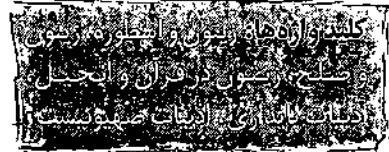 کلیدواژه‌ها: زیتون و اسطوره، زیتون
و صلح، زیتون در قرآن و انجیل
ادبیات پایداری، ادبیات صهیونیست